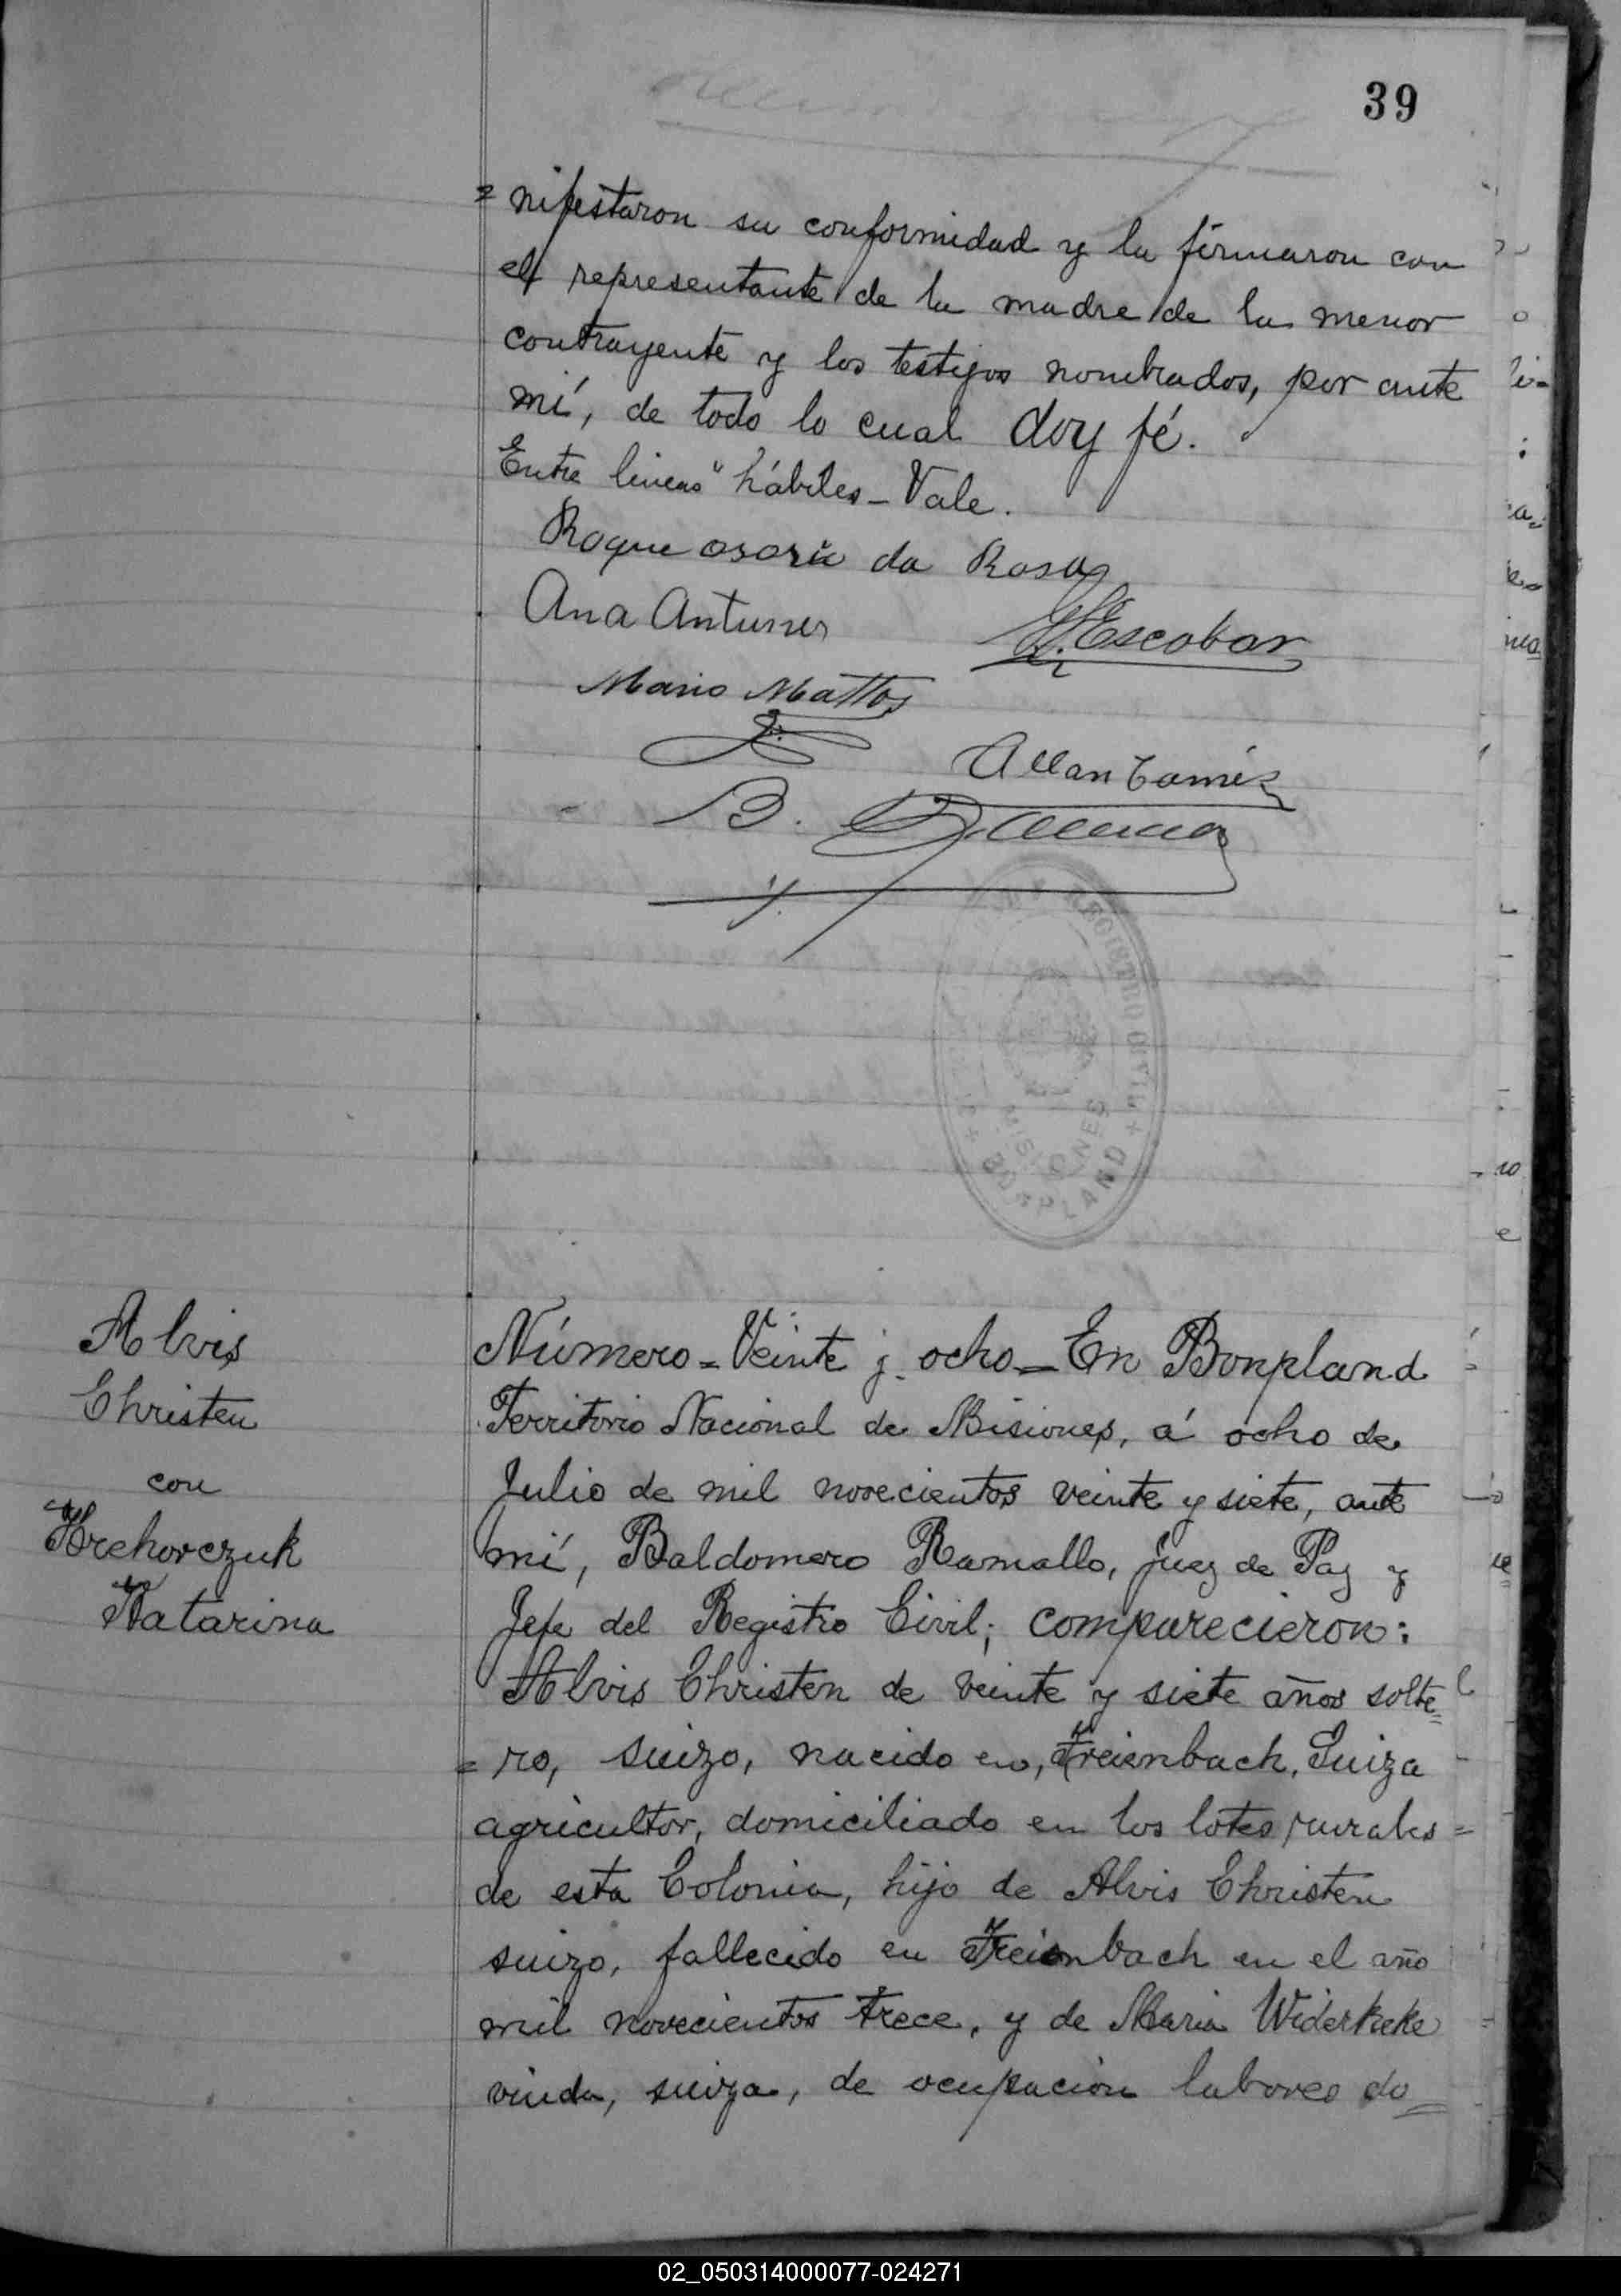 39
= nifestaron su conformidad y la firmaron con
el representante de la madre de la menor
contrayente y los testigos nombrados, por ante
mí, de todo lo cual doy fé.
Entre lineas "hábiles - Vale.
Roque osorio da Rosa
Ana Antunes
Escobar
Mario Mattos
Allan
B. Ramallo
REGISTRO CIVIL
MISIONES
+ BONPLAND +
Alvis
Christen
con
Hrehorczuk
Katarina
Número = Veinte y ocho = En Bonpland
Territorio Nacional de Misiones, á ocho de
Julio de mil novecientos veinte y siete, ante
mí, Baldomero Ramallo, juez de Paz y
Jefe del Registro Civil; comparecieron:
Alvis Christen de veinte y siete años solte=
= ro, suizo, nacido en, Freienbach, Suiza
agricultor, domiciliado en los lotes rurales
de esta Colonia, hijo de Alvis Christen
suizo, fallecido en Freienbach en el año
mil novecientos trece, y de Maria Widerkeke
viuda, suiza, de ocupación labores do=
02_050314000077-024271